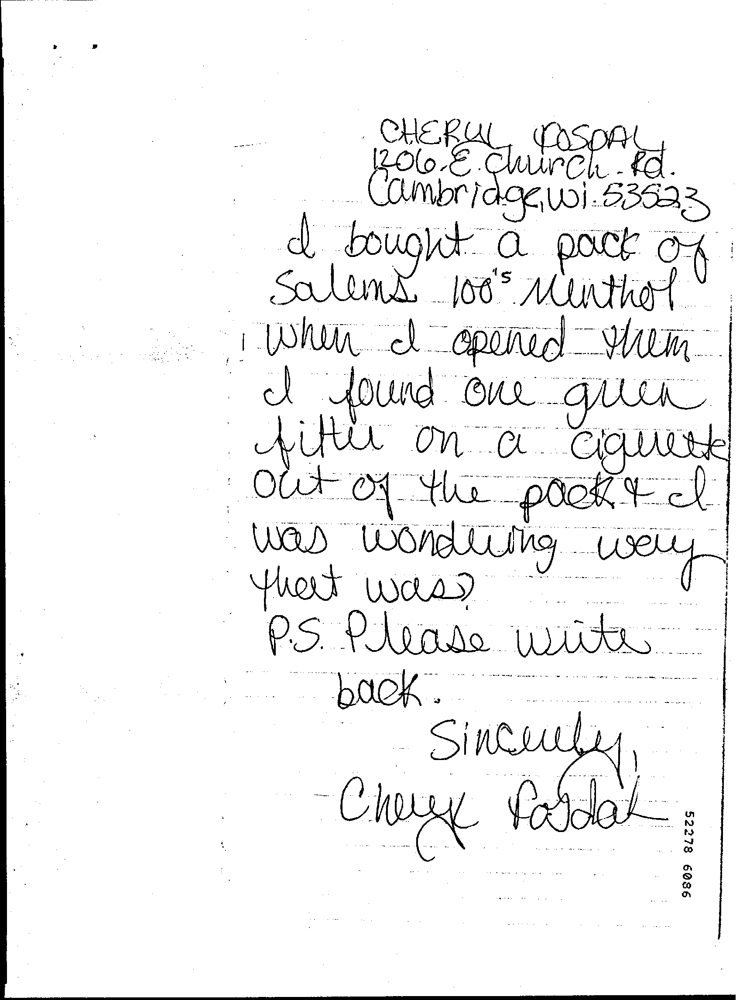 CHERYL POSDAL
1206 E. Church Rd.
Cambridge, Wi. 53523
I bought a pack of
Salems 100's Menthol
when I opened them
I found one green
filter on a cigerette
out of the pack & I
was wondering way
that was?
P.S. Please write
back.
Sincerely,
Cheryl Posdal
52278 6086